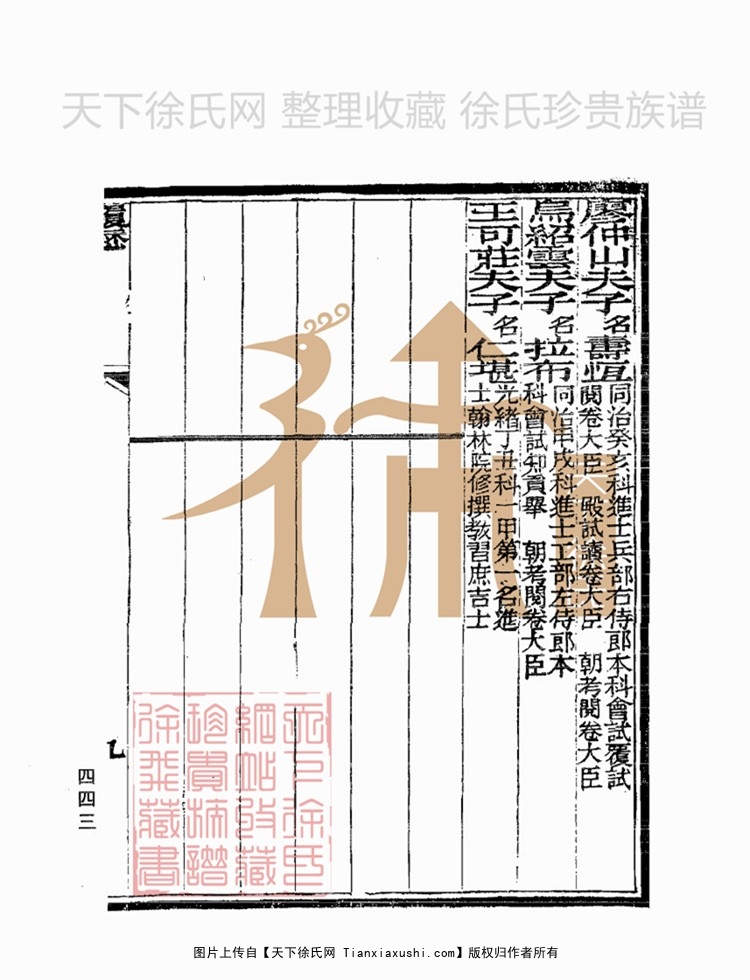 天下徐氏网 整理收藏 徐氏珍贵族谱
廖仲山夫子 名壽恒 同治癸亥科進士兵部右侍郎本科會試覆試
閱卷大臣 殿試讀卷大臣 朝考閱卷大臣
烏紹雲夫子 名拉布 同治甲戌科進士工部左侍郎本
科會試知貢舉 朝考閱卷大臣
王可莊夫子 名仁堪 光緒丁丑科一甲第一名進
士翰林院修撰教習庶吉士
四四三
天下徐氏
網站收藏
珍貴族譜
徐氏藏書
图片上传自【天下徐氏网 Tianxiaxushi.com】版权归作者所有